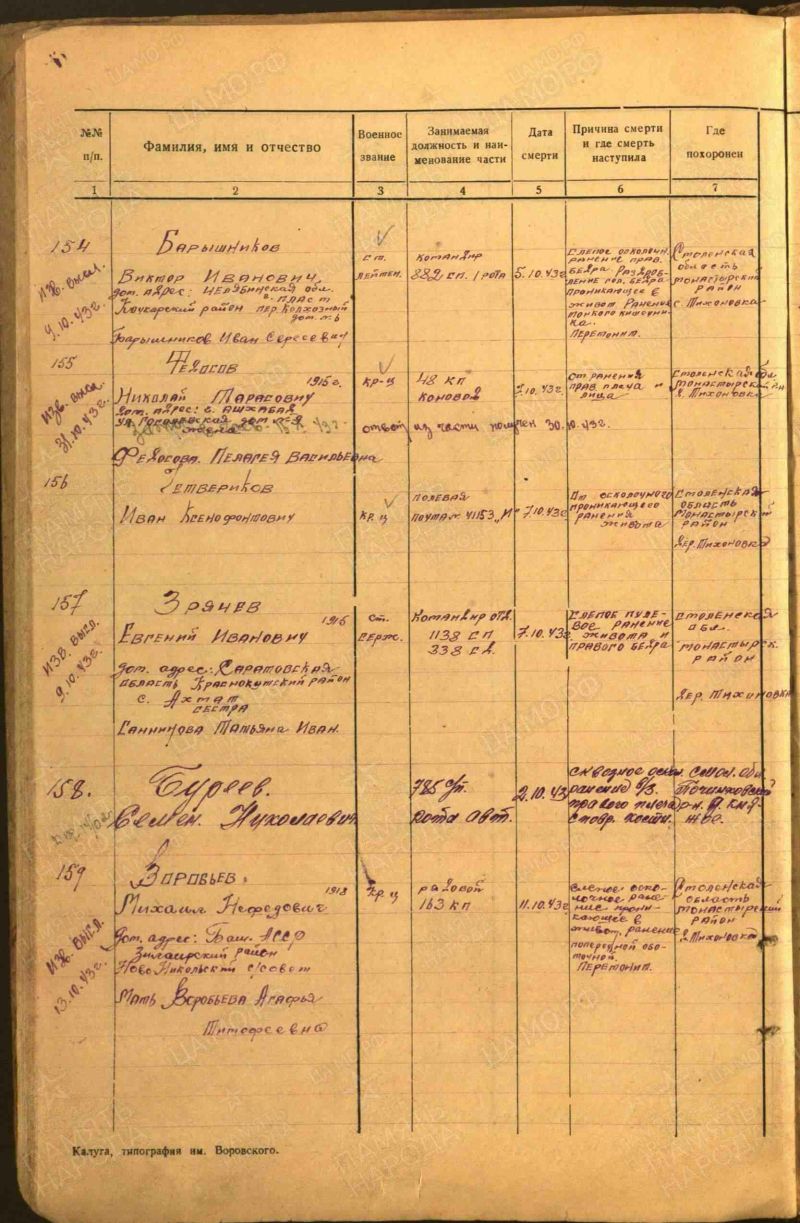 №№ п/п.
Фамилия, имя и отчество
Военное звание
Занимаемая должность и наименование части
Дата смерти
Причина смерти и где смерть наступила
Где похоронен
1 2 3 4 5 6 7
154
Барышников
Виктор Иванович
дом. адрес: Челябинская обл.
г. Пласт
Кочкарский район пер. Колхозный
дом. № 6
Барышников Иван Сергеевич
Изв. высл.
9.10.43г.
ст.
лейтен.
командир
882 сп. 1 рота
5.10.43г
Слепое осколочн.
ранение прав.
бедра. Раздроб-
ление гол. бедра
проникающее в
живот. Ранение
тонкого кишечни-
ка.
Перетонит.
Смоленская
область
Монастырский
район
с. Тихоновка
155
Федосов
1915г.
Николай Тарасович
дом. адрес: г. Ашхабад
жена
Федосова Пелагея Васильевна
Изв. высл.
31.10.43г.
кр-ц
48 кп
коновод
7.10.43г.
От ранения
прав. плеча и
лица
Смоленская об
Монастырской р.н
д. Тихоновка
ответ из части получен 30.10.43г.
156
Четвериков
Иван Ксенофонтович
кр-ц
полевая
почта № 41153 „И"
7.10.43г
От осколочного
проникающего
ранения
живота
Смоленская
область
Монастырский
район
дер. Тихоновка
157
Зрячев
1915
Евгений Иванович
дом. адрес: Саратовская
область Краснокутский район
с. Ахмат
сестра
Санникова Татьяна Иван.
Изв. высл.
9.10.43г.
Ст.
серж.
Командир отд.
1138 сп
338 сд.
7.10.43г.
Слепое пуле-
вое ранение
живота и
правого бедра
Смоленская
обл.
Монастырск.
район
дер. Тихоновка
158.
Буреев.
Семен. Николаевич
785 с/п.
рота авт.
2.10.43
сквозное оскол.
ранение в/з
правого плеча
с повр. кости.
Смол. обл.
Починковский
р-н.
159
Воробьев.
1913
Михаил Нефедович
дом. адрес: Баш. АССР
Зилаирский район
Ново Никольский с/совет
Мать Воробьева Агафья
Тимофеевна
Изв. высл.
13.10.43г.
кр-ц
рядовой
163 кп
11.10.43г
слепое оско-
лочное ране-
ние прони-
кающее в
живот, ранение
поперечной обо-
точной.
Перетонит.
Смоленская
область
Монастырский
район
д. Тихоновка
Калуга, типография им. Воровского.
ЦАМО.РФ
ПАМЯТЬ НАРОДА